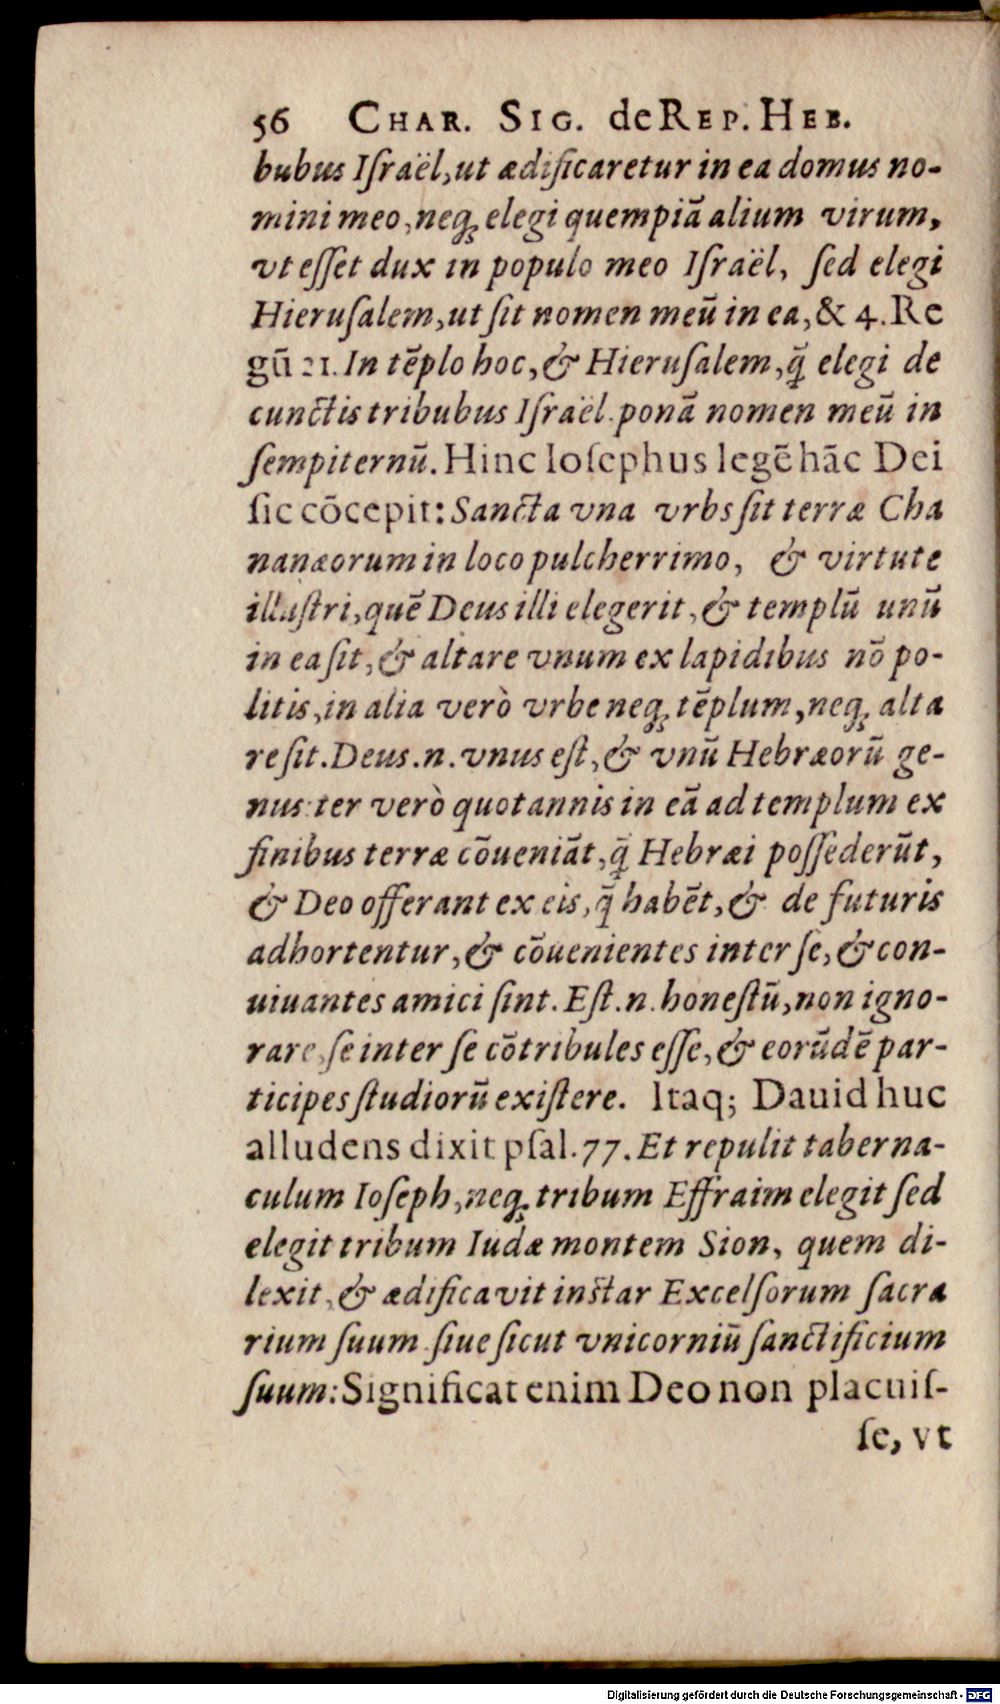 56 CHAR. SIG. de REP. HEB.
bubus Iſraël, ut ædificaretur in ea domus no-
mini meo, neq; elegi quempiā alium virum,
vt eſſet dux in populo meo Iſraël, ſed elegi
Hieruſalem, ut ſit nomen meū in ea, & 4. Re
gū 21. In tēplo hoc, & Hieruſalem, q̄ elegi de
cunctis tribubus Iſraël ponā nomen meū in
ſempiternū. Hinc Ioſephus legē hāc Dei
ſic cōcepit: Sancta vna vrbs ſit terræ Cha
nanæorum in loco pulcherrimo, & virtute
illuſtri, quē Deus illi elegerit, & templū unū
in ea ſit, & altare vnum ex lapidibus nō po-
litis, in alia verò vrbe neq; tēplum, neq; alta
re ſit. Deus .n. vnus eſt, & vnū Hebræorū ge-
nus: ter verò quotannis in eā ad templum ex
finibus terræ cōueniāt, q̄ Hebræi poſſederūt,
& Deo offerant ex eis, q̄ habēt, & de futuris
adhortentur, & cōuenientes inter ſe, & con-
uiuantes amici ſint. Eſt .n. honeſtū, non igno-
rare, ſe inter ſe cōtribules eſſe, & eorūdē par-
ticipes ſtudiorū exiſtere. Itaq; Dauid huc
alludens dixit pſal. 77. Et repulit taberna-
culum Ioſeph, neq; tribum Effraim elegit ſed
elegit tribum Iudæ montem Sion, quem di-
lexit, & ædificavit inſtar Excelſorum ſacra
rium ſuum ſiue ſicut vnicorniū ſanctificium
ſuum: Significat enim Deo non placuiſ-
ſe, vt
Digitalisierung gefördert durch die Deutsche Forschungsgemeinschaft - DFG